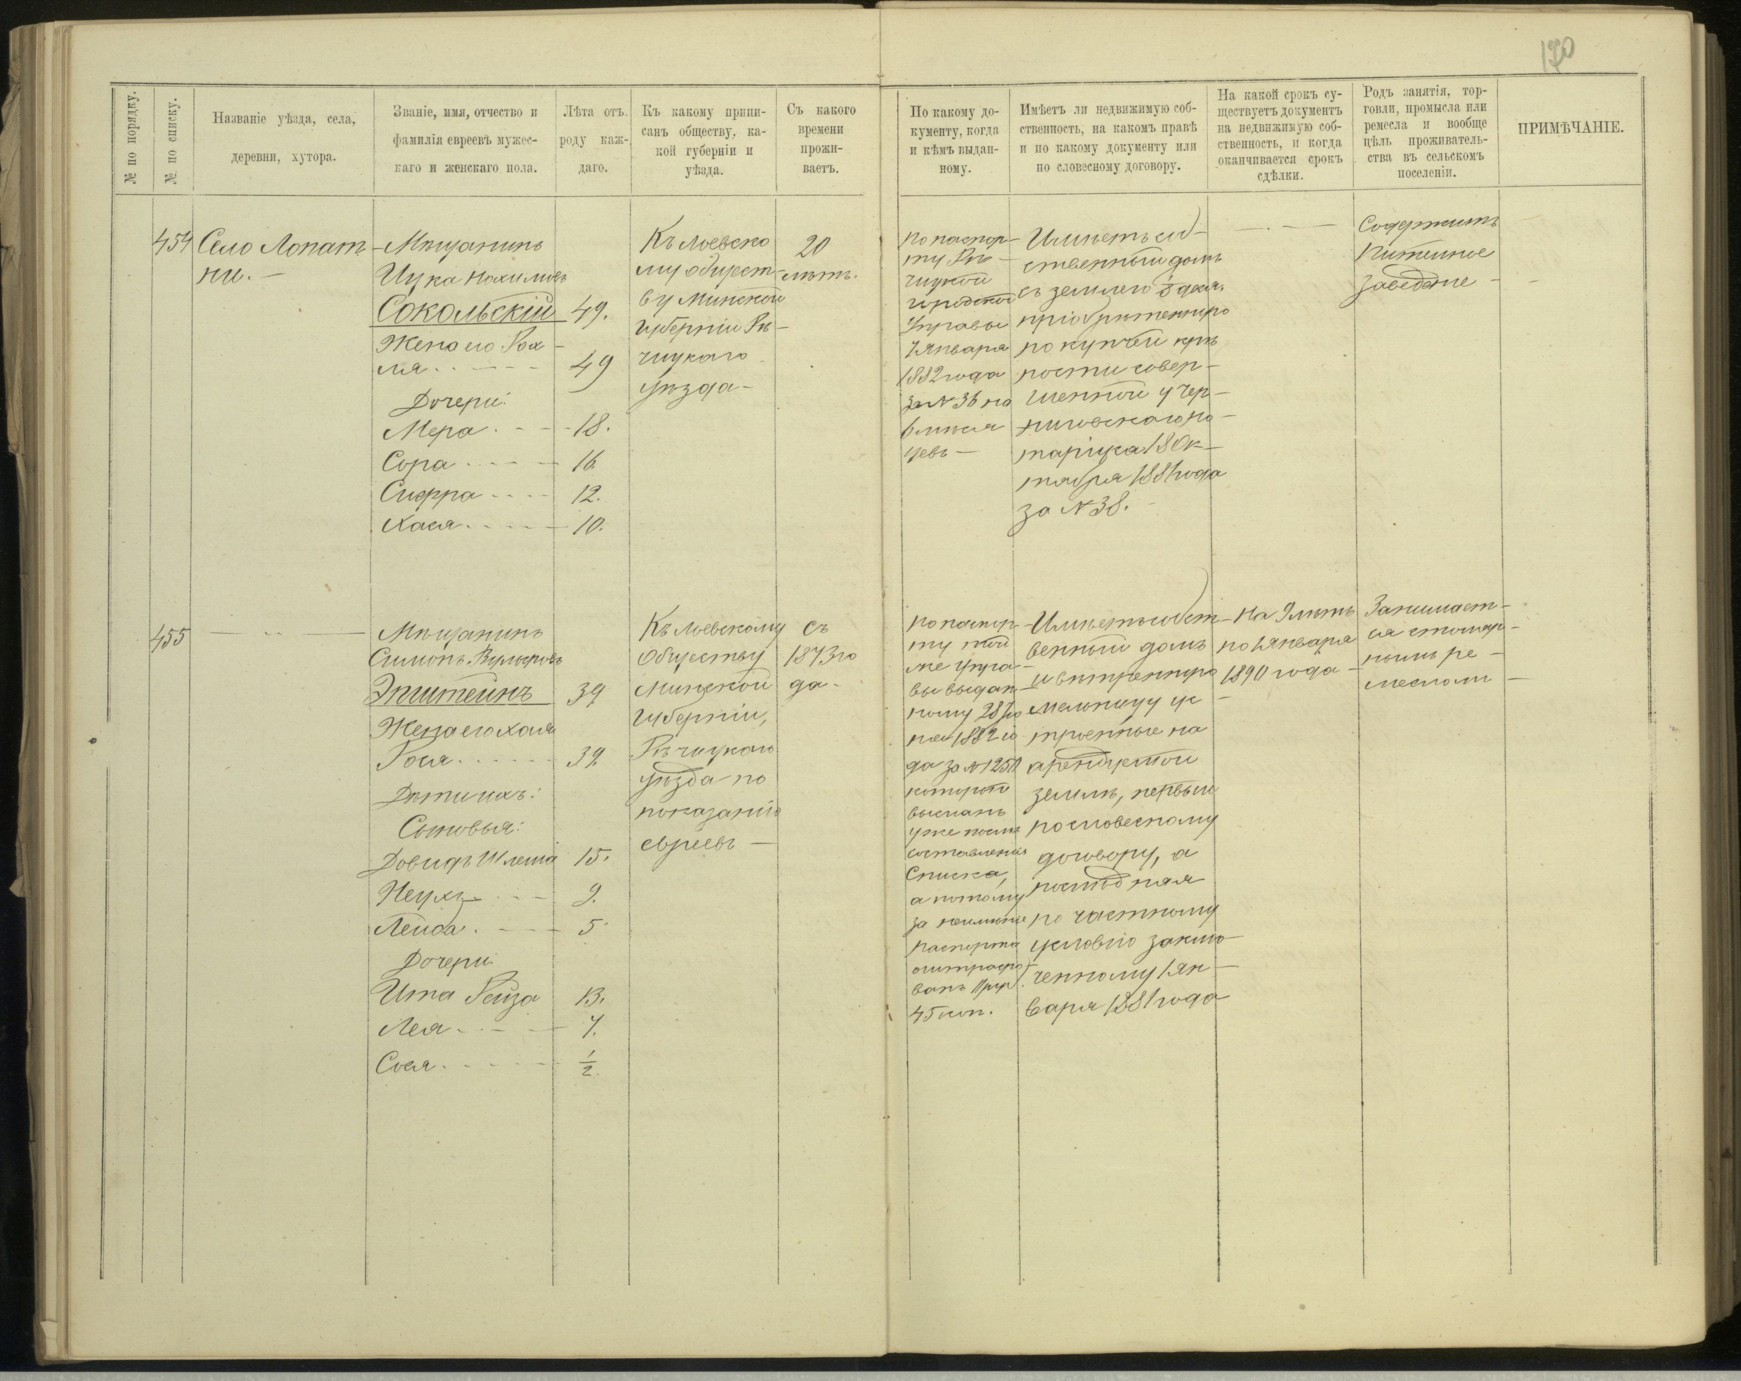 170
№ по порядку.
№ по списку.
Названіе уѣзда, села,
деревни, хутора.
Званіе, имя, отчество и
фамилія евреевъ мужес-
каго и женскаго пола.
Лѣта отъ
роду каж-
даго.
Къ какому припи-
санъ обществу, ка-
кой губерніи и
уѣзда.
Съ какого
времени
прожи-
ваетъ.
По какому до-
кументу, когда
и кѣмъ выдан-
ному.
Имѣетъ ли недвижимую соб-
ственность, на какомъ правѣ
и по какому документу или
по словесному договору.
На какой срокъ су-
ществуетъ документъ
на недвижимую соб-
ственность, и когда
оканчивается срокъ
сдѣлки.
Родъ занятія, тор-
говли, промысла или
ремесла и вообще
цѣль проживатель-
ства въ сельскомъ
поселеніи.
ПРИМѢЧАНІЕ.
454
Село Лопат-
ни.
Мѣщанинъ
Ицка Нахимовъ
Сокольскій
Жена его Рох-
ля
Дочери:
Мера
Сора
Сифра
Хася
49.
49
18.
16
12.
10.
Къ Лоевско
му общест-
ву Минской
губерніи Рѣ-
чицкаго
уѣзда
20
лѣтъ.
По паспор-
ту Рѣ-
чицкой
городской
Управы
Января
1882 года
за № 36 на
6 мѣся
цевъ
Имѣетъ соб-
ственный домъ
съ землею
пріобрѣтенную
по купчей крѣ
пости совер-
шенной у Чер-
ниговскаго но-
таріуса 18 Ок-
тября 1881 года
за № 38.
Содержитъ
Питейное
заведеніе
455
Мѣщанинъ
Симонъ
Эпштейнъ
Жена его Хая
Рося
Дѣти ихъ:
Сыновья:
Довидъ Шлема
Неухъ
Лейба
Дочери:
Ита Рейза
Лея
Сося
39
32
15.
9.
5.
13.
7.
1/2
Къ Лоевскому
Обществу
Минской
губерніи,
Рѣчицкаго
уѣзда по
показанію
евреевъ
съ
1873 го
да
По паспор-
ту той
же Упра-
вы выдан-
ному 28
1882 го
да за № 1250
который
высланъ
уже послѣ
составленія
Списка,
а потому
за неимѣніе
паспорта
оштрафо-
ванъ
45 коп.
Имѣетъ собст-
венный домъ
и вѣтренную
мельницу ус-
троенные на
арендуемой
землѣ, первый
по словесному
договору, а
послѣдняя
по частному
условію заклю-
ченному 1 Ян-
варя 1881 года
На 9 лѣтъ
по 1 Января
1890 года
Занимает-
ся столяр-
нымъ ре-
месломъ